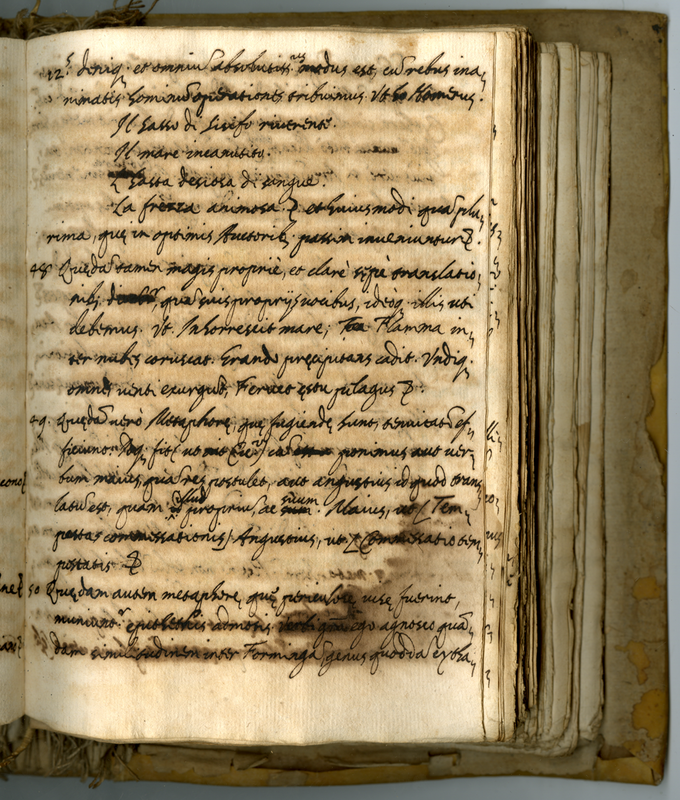 deniq. et omniũ absolutiss.us modus est, cũ rebus ina,
nimatis hominũ operationes tribuimus. Vt Homerus.
Il sasso di Sisifo riverente.
Il mare incanutito.
hasta desiosa di sangue.
La frezza animosa. et huiusmodi quã plu,
rima, quę in optimis Auctorib, passim inveniuntur
48 Quędã tamen magis propriè, et clarè sępè translatio,
nib, quã suis proprijs vocibus, ideoq. illis uti
debemus. Vt. Inhorrescit mare; Flamma in,
ter nubes coruscat. Grando pręcipitans cadit. Vndiq.
omnes venti exurgũt, Fervet ęstu pelagus
49. Quędã verò Metaphorę, quę fugiendę sunt, tenuitatẽ ef,
ficiunt. ponimus aut ver,
bum maius, quã res postulet, aut angustius id quod trans
latũ est, quam illud propriũ, ac suum. Maius, ut Tem,
pestas commissationis) Angustius, ut Commissatio tem,
pestatis
50 Quędam autem metaphorę, quę periculosę visę fuerint,
epithethis admotis ego agnosco quã,
dam similitudinem inter Formingã genus quoddã cytha,